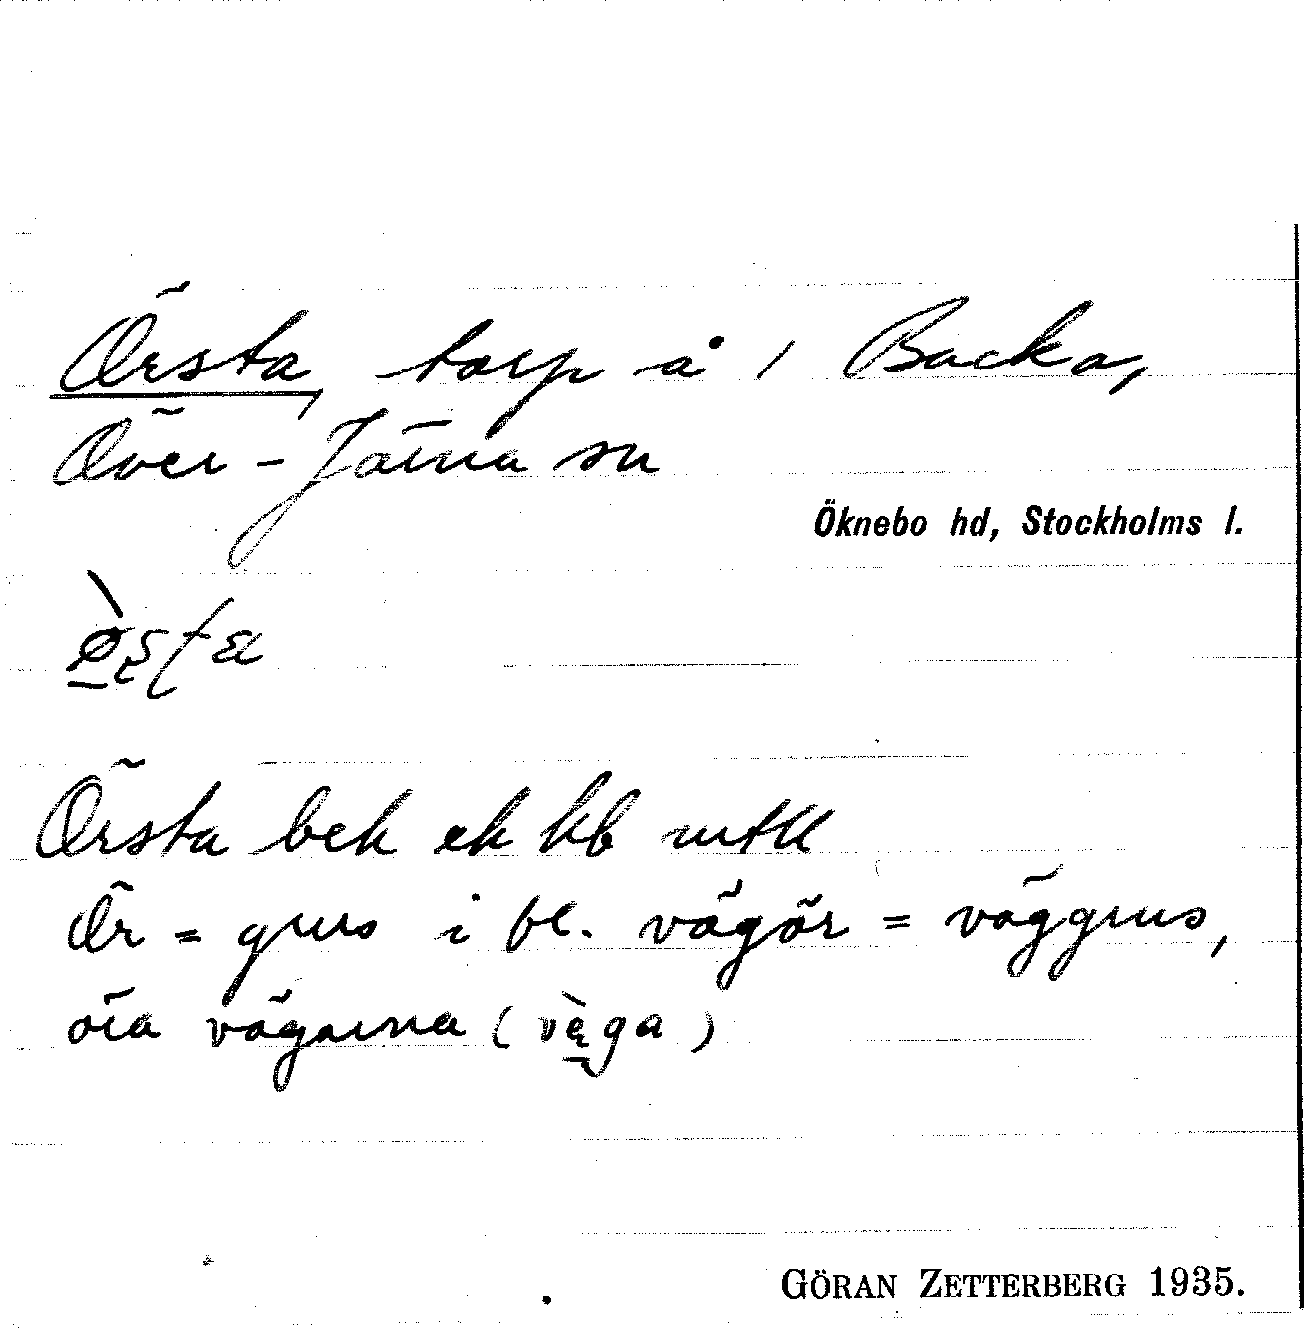 Örsta, torp å / Backa,
Över-Järna sn
Öknebo hd, Stockholms l.
Örsta bek ek kb mtll
Ör = grus i bl. vägör = väggrus,
öra vägarna (vęga)
GÖRAN ZETTERBERG 1935.